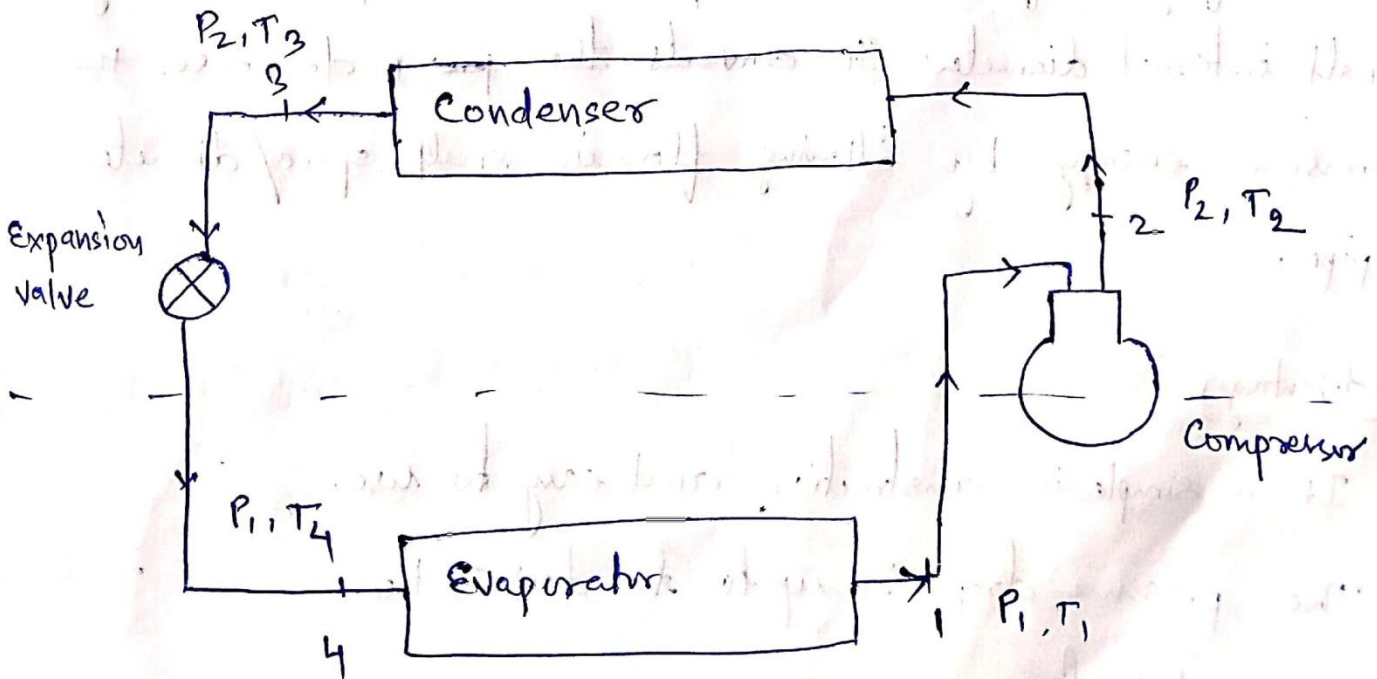 P₂, T₃
3
Condenser
Expansion
valve
2 P₂, T₂
Compressor
P₁, T₄
4
Evaporator
1 P₁, T₁